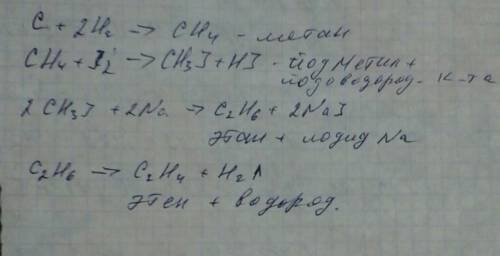 C + 2H₂ → CH₄ - метан
CH₄ + I₂ → CH₃I + HI - йод метил +
йодоводород. к-та
2 CH₃I + 2Na → C₂H₆ + 2NaI
этан + йодид Na
C₂H₆ → C₂H₄ + H₂↑
этен + водород.